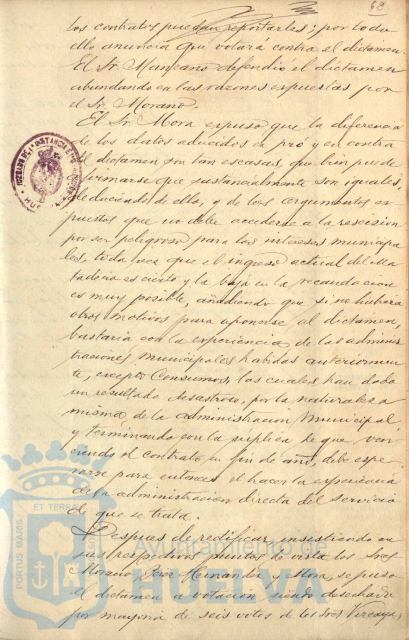 68
los contratos puedan reportarles; por todo
ello anuncia que votará contra el dictamen.
El Sr. Manzano defendió el dictamen
abundando en las razones espuestas por
el Sr. Morano.
El Sr. Mora espuso que la diferencia
de los datos aducidos en pró y en contra
del dictamen son tan escasas, que bien puede
afirmarse que sustancialmente son iguales,
deduciendo de ellos, y de los argumentos es-
puestos que no debe accederse a la rescision
por ser peligroso para los intereses municipa-
les, toda vez que el ingreso actual del Ma-
tadero es cierto y la baja en la recaudacion
es muy posible, añadiendo que si no hubiera
otros motivos para oponerse al dictamen,
bastaria con la experiencia de las adminis-
traciones municipales habidas anteriormen-
te, excepto Consumos, las cuales han dado
un resultado desastroso, por la naturaleza
misma de la administracion municipal
y terminando con la suplica de que ven-
ciendo el contrato en fin de año, debe espe-
rarse para entonces el hacer la experiencia
de la administracion directa del servicio
de que se trata.
Despues de rectificar, insistiendo en
sus respectivos puntos de vista los Sres
Morano, Jose Hernandez y Mora, se puso
el dictamen a votacion siendo desechado
por mayoria de seis votos de los Sres
PORTUS MARIS ET TERRAE
Ayuntamiento de
HUELVA